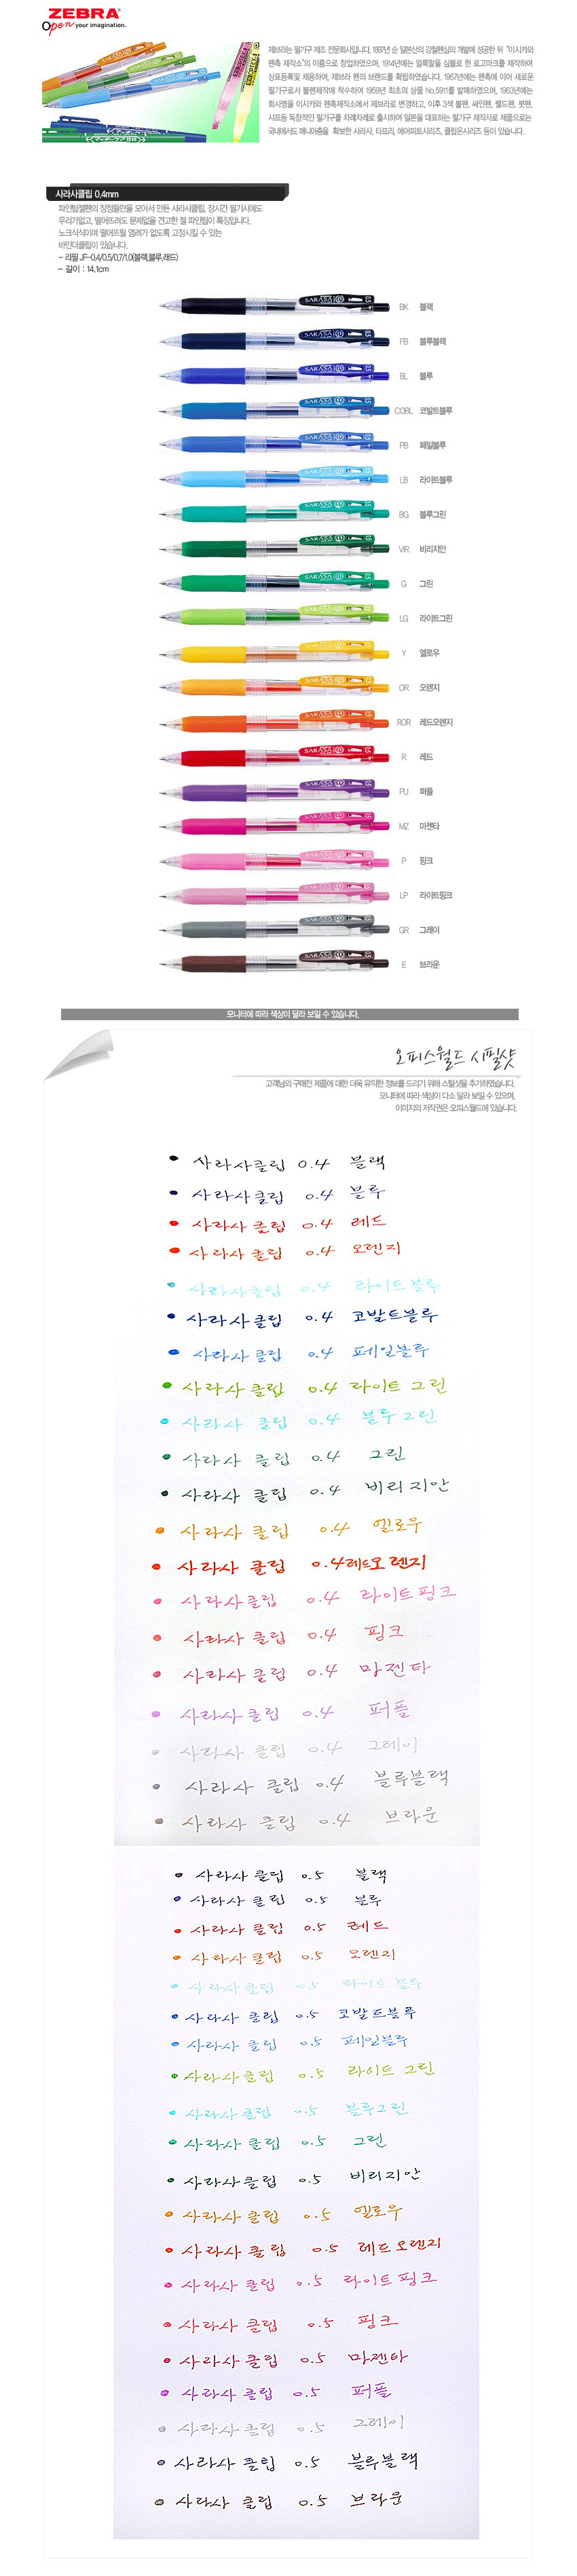 ZEBRA
Open your imagination.
제브라는 필기구 제조 전문회사입니다. 1897년 순 일본산의 강철펜심의 개발에 성공한 뒤 "이시카와
펜촉 제작소"의 이름으로 창업하였으며, 1914년에는 얼룩말을 심볼로 한 로고마크를 제작하여
상표등록및 채용하여, 제브라 펜의 브랜드를 확립하였습니다. 1957년에는 펜촉에 이어 새로운
필기구로서 볼펜제작에 착수하여 1959년 최초의 상품 No.5911를 발매하였으며, 1963년에는
회사명을 이시카와 펜촉제작소에서 제브라로 변경하고, 이후 3색 볼펜, 싸인펜, 펠드펜, 붓펜,
샤프등 독창적인 필기구를 차례차례로 출시하여 일본을 대표하는 필기구 제작사로 제품으로는
국내에서도 매니아층을 확보한 사라사, 타프리, 에어피트시리즈, 클립온시리즈 등이 있습니다.
사라사클립 0.4mm
파인팁젤펜의 장점들만을 모아서 만든 사라사클립, 장시간 필기시에도
무리가없고, 떨어뜨려도 문제없을 견고한 젤 파인팁이 특징입니다.
노크식식이며 떨어뜨릴 염려가 없도록 고정시킬 수 있는
바인더클립이 있습니다.
- 리필 JF-0.4/0.5/0.7/1.0(블랙,블루,레드)
- 길이 : 14.1cm
BK 블랙
FB 블루블랙
BL 블루
COBL 코발트블루
PB 페일블루
LB 라이트블루
BG 블루그린
VIR 비리지안
G 그린
LG 라이트그린
Y 옐로우
OR 오렌지
ROR 레드오렌지
R 레드
PU 퍼플
MZ 마젠타
P 핑크
LP 라이트핑크
GR 그레이
E 브라운
모니터에 따라 색상이 달라 보일 수 있습니다.
오피스월드 시필샷
고객님의 구매전 제품에 대한 더욱 유익한 정보를 드리기 위해 스틸샷을 추가하였습니다.
모니터에 따라 색상이 다소 달라 보일 수 있으며,
이미지의 저작권은 오피스월드에 있습니다.
사라사클립 0.4 블랙
사라사클립 0.4 블루
사라사 클립 0.4 레드
사라사 클립 0.4 오렌지
사라사클립 0.4 라이트블루
사라사 클립 0.4 코발트블루
사라사 클립 0.4 페일블루
사라사 클립 0.4 라이트 그린
사라사 클립 0.4 블루그린
사라사 클립 0.4 그린
사라사 클립 0.4 비리지안
사라사 클립 0.4 옐로우
사라사 클립 0.4 레드오렌지
사라사클립 0.4 라이트핑크
사라사 클립 0.4 핑크
사라사 클립 0.4 마젠타
사라사 클립 0.4 퍼플
사라사 클립 0.4 그레이
사라사 클립 0.4 블루블랙
사라사 클립 0.4 브라운
사라사 클립 0.5 블랙
사라사 클립 0.5 블루
사라사 클립 0.5 레드
사라사 클립 0.5 오렌지
사라사 클립 0.5 라이트 블루
사라사 클립 0.5 코발트블루
사라사 클립 0.5 페일블루
사라사 클립 0.5 라이트 그린
사라사 클립 0.5 블루그린
사라사 클립 0.5 그린
사라사클립 0.5 비리지안
사라사 클립 0.5 옐로우
사라사 클립 0.5 레드오렌지
사라사 클립 0.5 라이트 핑크
사라사 클립 0.5 핑크
사라사 클립 0.5 마젠타
사라사 클립 0.5 퍼플
사라사 클립 0.5 그레이
사라사 클립 0.5 블루블랙
사라사 클립 0.5 브라운